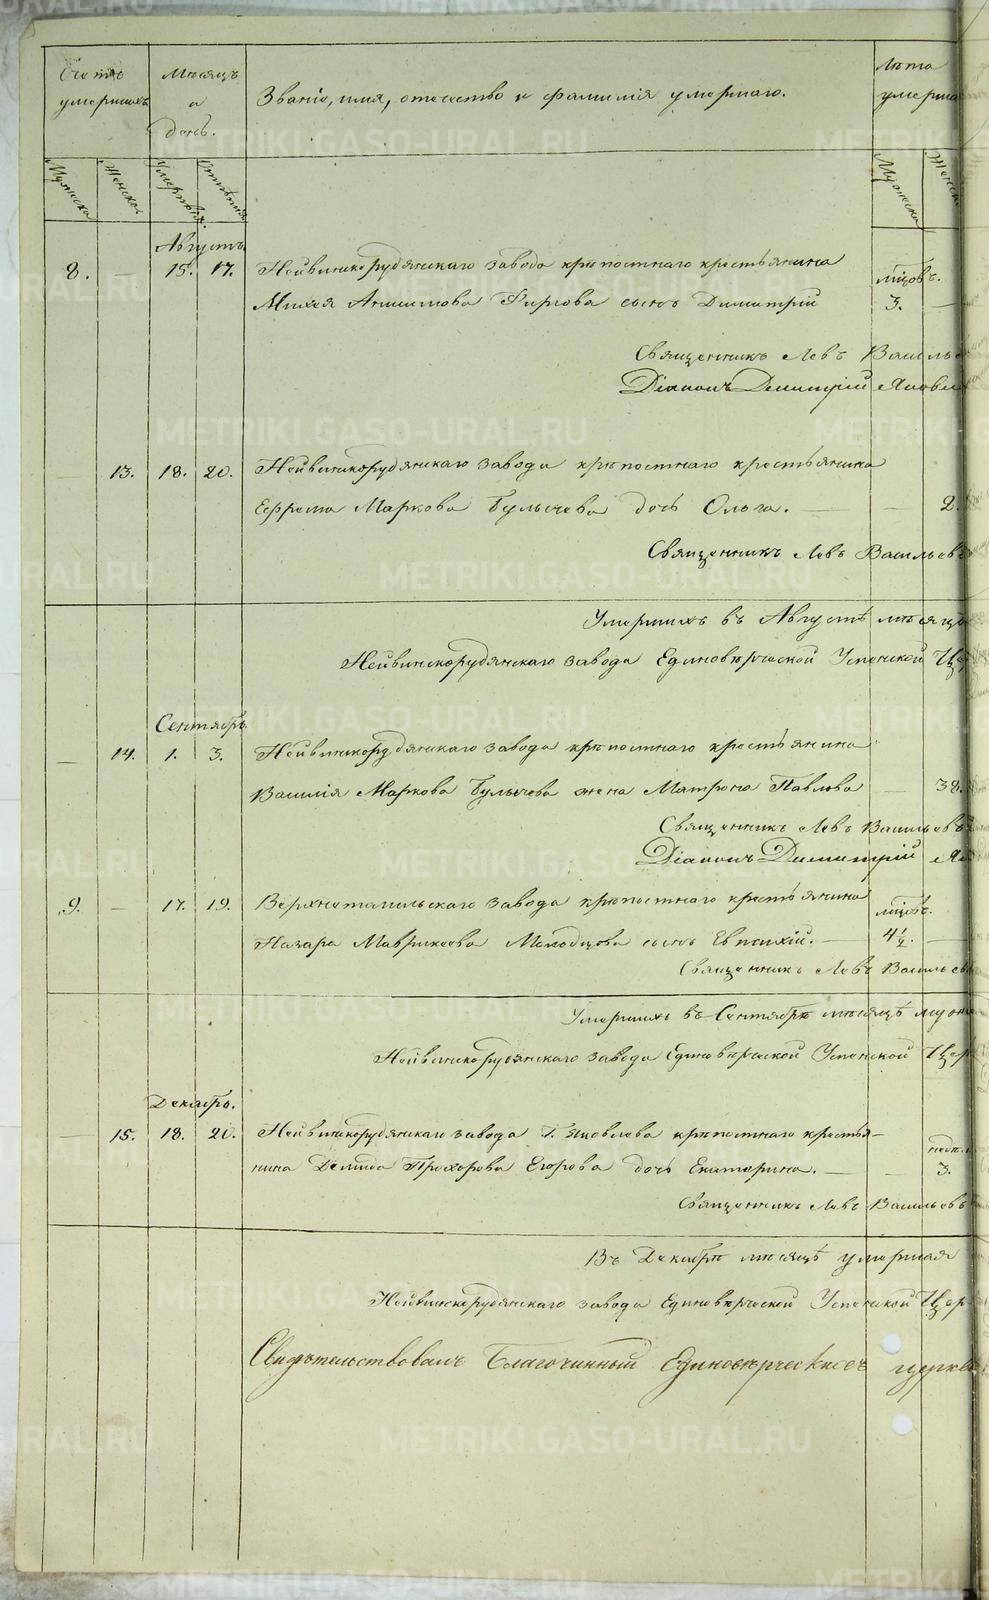 Счетъ умершихъ
Мѣсяцъ и день.
Званіе, имя, отечество и фамилія умершаго.
Лѣта умерша
Мужеска
Женска
Умертвія.
Отпѣтія
Мужеска
Женск
Августъ
8. — 15. 17. Нейвинскорудянскаго завода крѣпостнаго крестьянина мѣсяцовъ.
Анисимова сынъ Димитрій 3. —
Священникъ Левъ Василье
Діаконъ Димитрій Яковле
— 13. 18. 20. Нейвинскорудянскаго завода крѣпостнаго крестьянина
Ефрема Маркова Булычева дочь Ольга. — — 2.
Священникъ Левъ Васильевъ
Умершихъ въ Августѣ мѣсяцѣ
Нейвинскорудянскаго завода Единовѣрческой Успенской Цер
Сентябрь
— 14. 1. 3. Нейвинскорудянскаго завода крѣпостнаго крестьянина
Василія Маркова Булычева жена Матрона Павлова — 38.
Священникъ Левъ Васильевъ
Діаконъ Димитрій Як
9. — 17. 19. Верхнетагильскаго завода крѣпостнаго крестьянина мѣсяцов.
Назара Маврикеева Молодцова сынъ Евпсихій. — 4 1/2. —
Священникъ Левъ Васильевъ
Умершихъ въ Сентябрѣ мѣсяцѣ муже
Нейвинскорудянскаго завода Единовѣрческой Успенской Цер
Декабрь.
— 15. 18. 20. Нейвинскорудянскаго завода Г. Яковлева крѣпостнаго крестья- недѣл
нина Демида Прохорова Егорова дочь Екатерина. — — 3.
Священникъ Левъ Васильевъ
Въ Декабрѣ мѣсяцѣ умершая
Нейвинскорудянскаго завода Единовѣрческой Успенской Цер
Свидѣтельствовалъ Благочинный Единовѣрческихъ церкв
METRIKI.GASO-URAL.RU